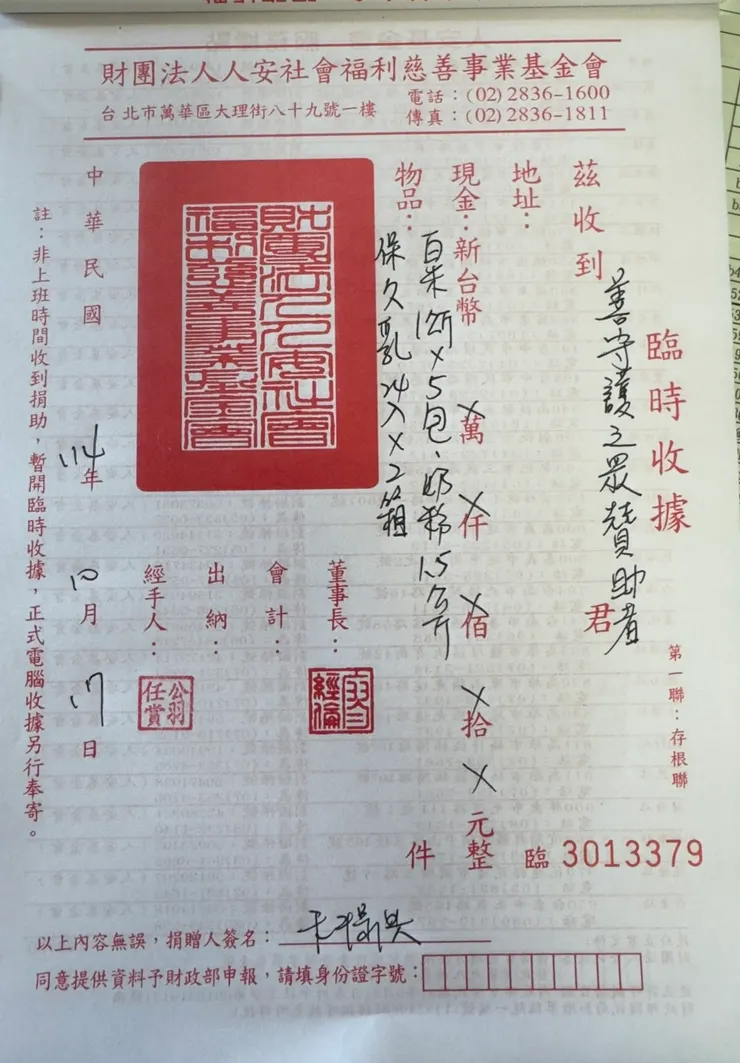 財團法人人安社會福利慈善事業基金會
電話：(02)2836-1600
台北市萬華區大理街八十九號一樓
傳真：(02)2836-1811
臨時收據
第一聯：存根聯
茲收到 善守護之眾贊助者 君
地址：
現金：新台幣 X萬 X仟 X佰 X拾 X元整
物品： 白米1斤x5包、奶粉1.5公斤
保久乳24入x2箱
件
臨 3013379
財團法人人安社會
福利慈善事業基金會
董事長：
會計：
出納：
經手人：
中華民國 114年 10月 17日
註：非上班時間收到捐助，暫開臨時收據，正式電腦收據另行奉寄。
以上內容無誤，捐贈人簽名：
同意提供資料予財政部申報，請填身份證字號：